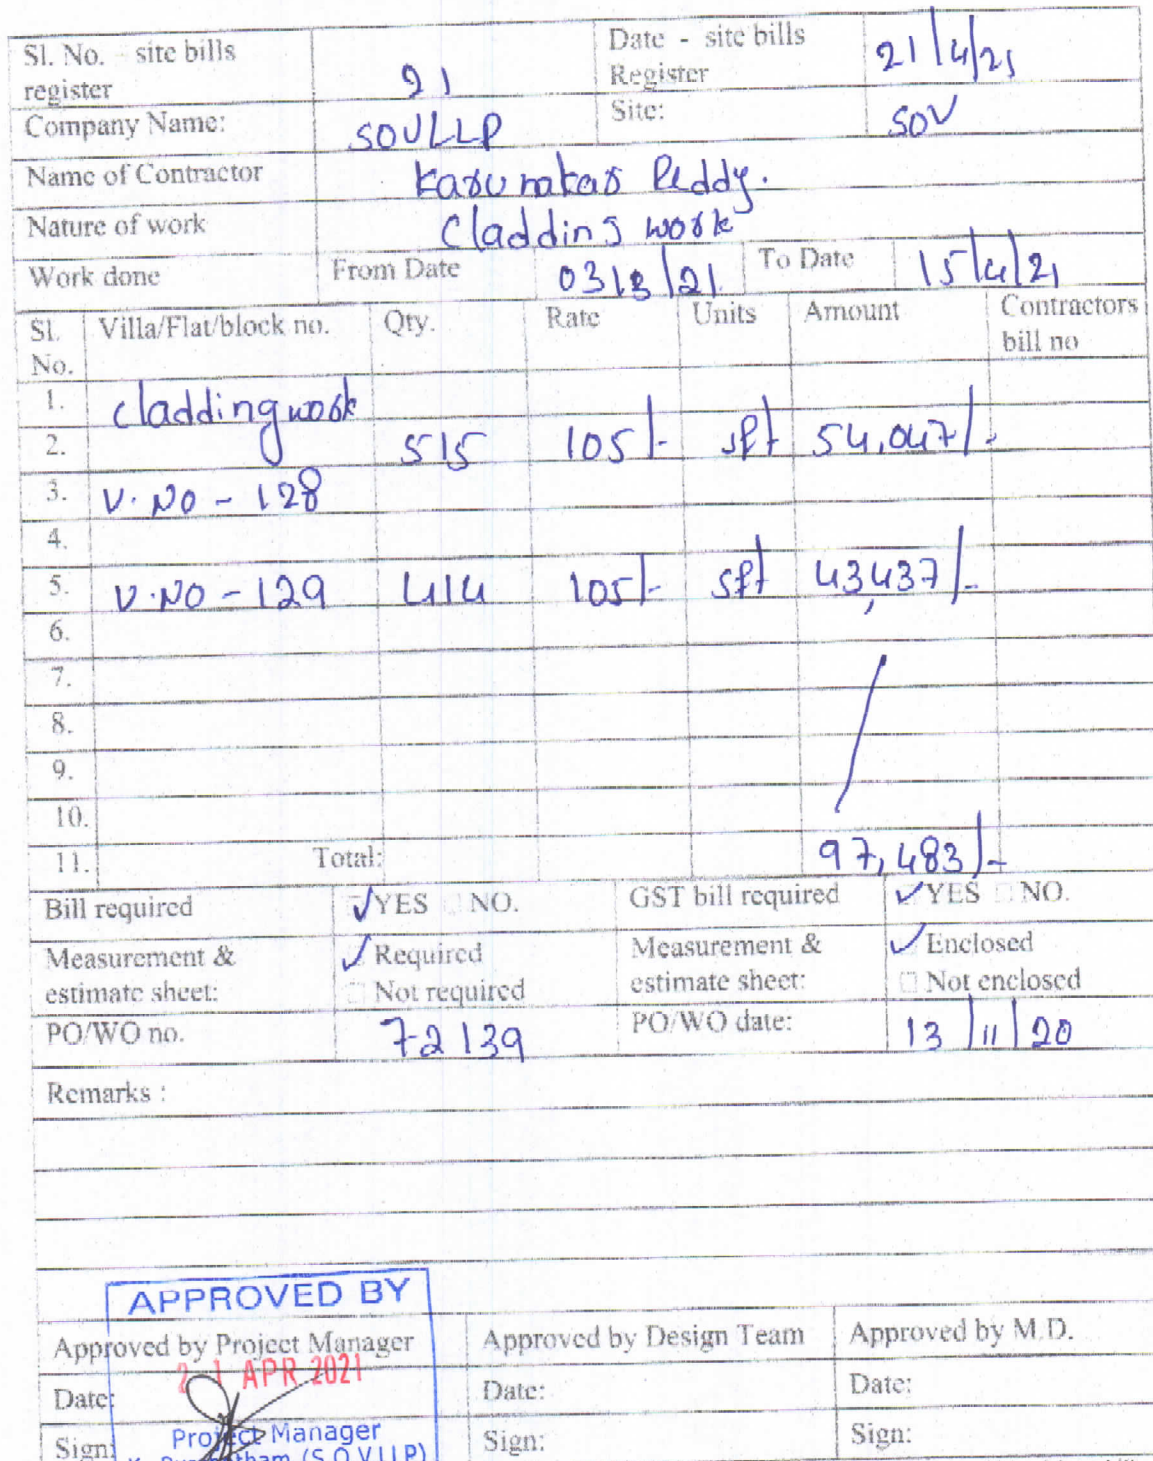 Sl. No. - site bills register 91 Date - site bills Register 21/4/21
Company Name: SOVLLP Site: SOV
Name of Contractor Karunakar Reddy.
Nature of work Cladding work
Work done From Date 03/3/21 To Date 15/4/21
Sl. No. Villa/Flat/block no. Qty. Rate Units Amount Contractors bill no
1. cladding work
2. 515 105/- sft 54,047/-
3. V.NO - 128
4.
5. V.NO - 129 414 105/- sft 43,437/-
6.
7.
8.
9.
10.
11. Total: 97,483/-
Bill required YES NO. GST bill required YES NO.
Measurement & estimate sheet: Required Not required Measurement & estimate sheet: Enclosed Not enclosed
PO/WO no. 72139 PO/WO date: 13/11/20
Remarks :
APPROVED BY
Approved by Project Manager Approved by Design Team Approved by M.D.
21 APR 2021
Date: Date: Date:
Project Manager
Sign: Sign: Sign:
(S.O.V.LLP)